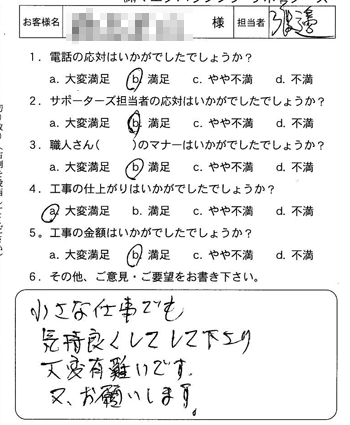 お客様名 様 担当者 渡邊
1．電話の応対はいかがでしたでしょうか？
a. 大変満足 b. 満足 c. やや不満 d. 不満
2．サポーターズ担当者の応対はいかがでしたでしょうか？
a. 大変満足 b. 満足 c. やや不満 d. 不満
3．職人さん（　　）のマナーはいかがでしたでしょうか？
a. 大変満足 b. 満足 c. やや不満 d. 不満
4．工事の仕上がりはいかがでしたでしょうか？
a. 大変満足 b. 満足 c. やや不満 d. 不満
5．工事の金額はいかがでしたでしょうか？
a. 大変満足 b. 満足 c. やや不満 d. 不満
6．その他、ご意見・ご要望をお書き下さい。
小さな仕事でも
気持良くしてして下さり
大変有難いです.
又、お願いします。